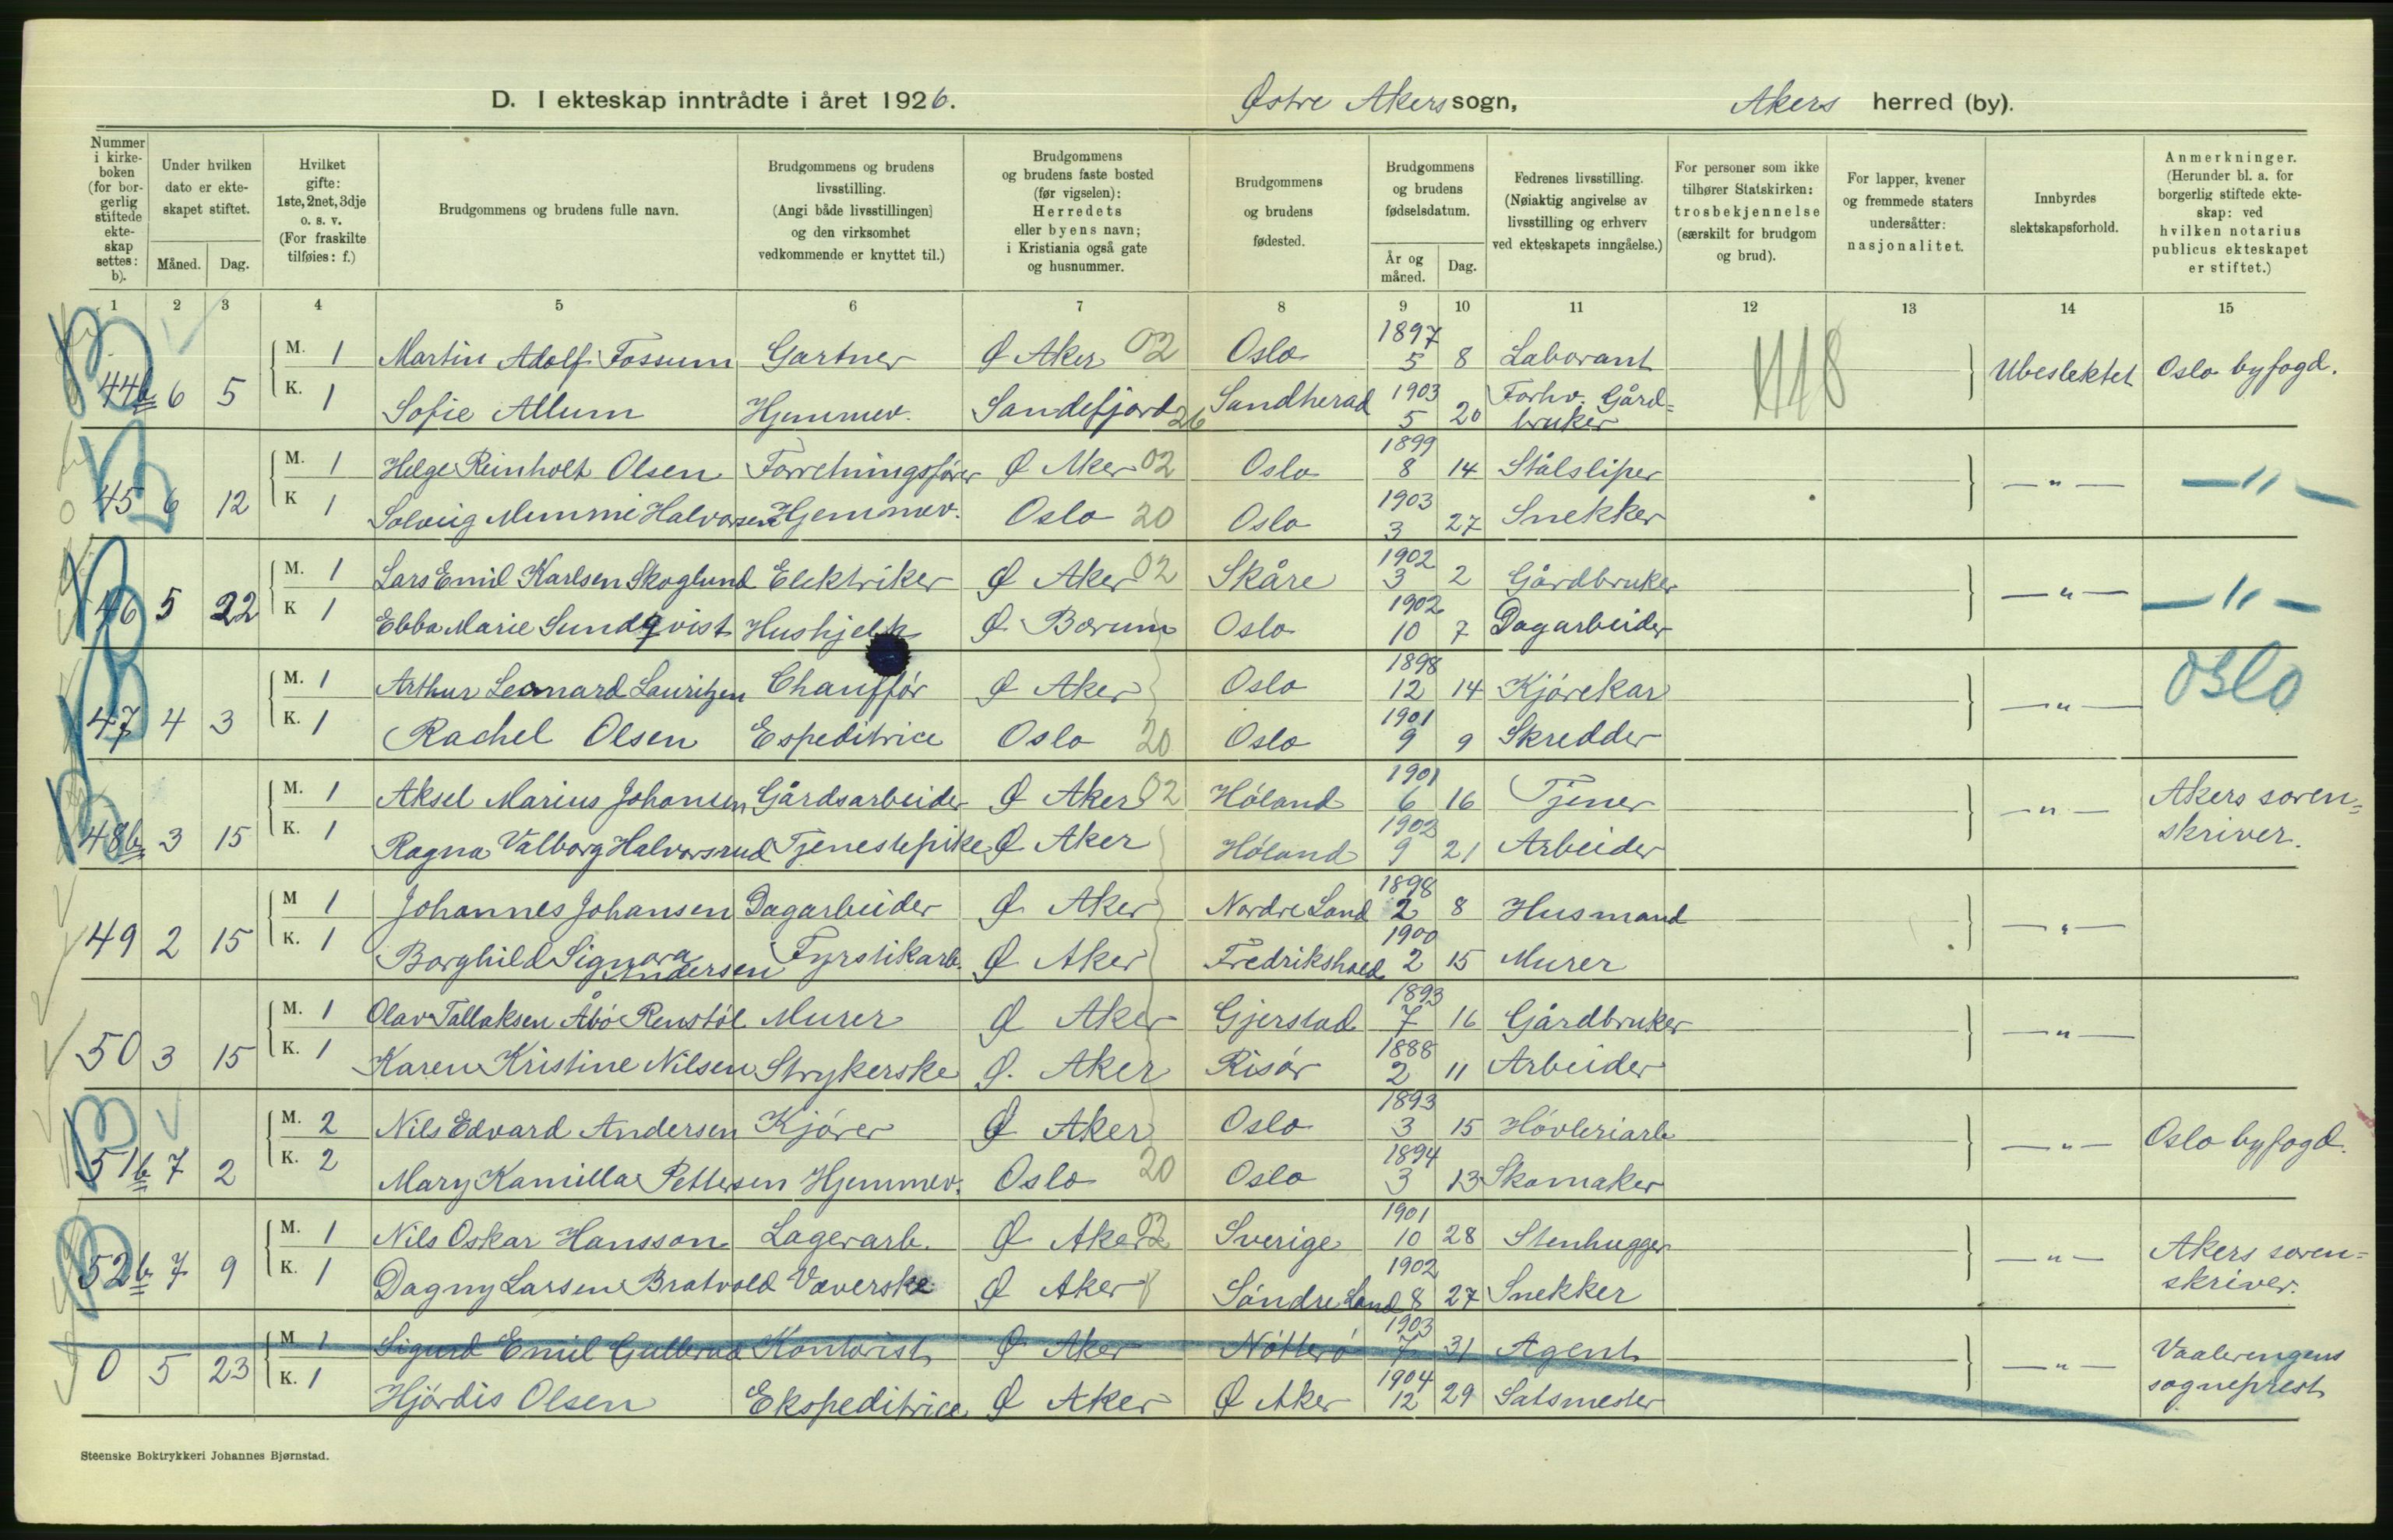 D. I ekteskap inntrådte i året 1926. Østre Akers sogn, Akers herred (by).
Nummer i kirke-boken (for bor-gerlig stiftede ekte-skap settes: b).
Under hvilken dato er ekte-skapet stiftet.
Måned. Dag.
Hvilket gifte: 1ste, 2net, 3dje o. s. v. (For fraskilte tilføies: f.)
Brudgommens og brudens fulle navn.
Brudgommens og brudens livsstilling. (Angi både livsstillingen og den virksomhet vedkommende er knyttet til.)
Brudgommens og brudens faste bosted (før vigselen): Herredets eller byens navn; i Kristiania også gate og husnummer.
Brudgommens og brudens fødested.
Brudgommens og brudens fødselsdatum.
År og måned. Dag.
Fedrenes livsstilling. (Nøiaktig angivelse av livsstilling og erhverv ved ekteskapets inngåelse.)
For personer som ikke tilhører Statskirken: trosbekjennelse (særskilt for brudgom og brud).
For lapper, kvener og fremmede staters undersåtter: nasjonalitet.
Innbyrdes slektskapsforhold.
Anmerkninger. (Herunder bl. a. for borgerlig stiftede ekte-skap: ved hvilken notarius publicus ekteskapet er stiftet.)
1 2 3 4 5 6 7 8 9 10 11 12 13 14 15
M. 1 Martin Adolf Fossum Gartner Ø Aker 02 Oslo 1897 5 8 Laborant
44b 6 5 Ubeslektet Oslo byfogd.
K. 1 Sofie Allum Hjemmev. Sandefjord 26 Sandherad 1903 5 20 Forhv. Gård=bruker
M. 1 Helge Reinholt Olsen Forretningsfører Ø Aker 02 Oslo 1899 8 14 Stålsliper
45 6 12 — " — — " —
K 1 Solveig Mimmi Halvorsen Hjemmev. Oslo 20 Oslo 1903 3 27 Snekker
M. 1 Lars Emil Karlsen Skoglund Elektriker Ø Aker 02 Skåre 1902 3 2 Gårdbruker
46 5 22 — " — — " —
K 1 Ebba Marie Sundqvist Hushjelp Ø Bærum Oslo 1902 10 7 Dagarbeider
M. 1 Arthur Leonard Lauritzen Chauffør Ø Aker Oslo 1898 12 14 Kjørekar
47 4 3 — " — Oslo
K. 1 Rachel Olsen Espeditrice Oslo 20 Oslo 1901 9 9 Skredder
M. 1 Aksel Marius Johansen Gårdsarbeider Ø Aker 02 Høland 1901 6 16 Tjener
48b 3 15 — " — Akers soren=skriver.
K. 1 Ragna Valborg Halvorsrud Tjenestepike Ø Aker Høland 1902 9 21 Arbeider
M 1 Johannes Johansen Dagarbeider Ø Aker Nordre Land 1898 2 8 Husmand
49 2 15 — " —
K. 1 Borghild Signora Andersen Fyrstikarb. Ø Aker Fredrikshald 1900 2 15 Murer
M. 1 Olav Tallaksen Åbø Renstøl Murer Ø Aker Gjerstad 1893 7 16 Gårdbruker
50 3 15 — " —
K. 1 Karen Kristine Nilsen Strykerske Ø. Aker Risør 1888 2 11 Arbeider
M. 2 Nils Edvard Andersen Kjører Ø Aker Oslo 1893 3 15 Høvleriarb
51b 7 2 — " — Oslo byfogd.
K. 2 Mary Kamilla Pettersen Hjemmev. Oslo 20 Oslo 1894 3 13 Skomaker
M. 1 Nils Oskar Hansson Lagerarb. Ø Aker 02 Sverige 1901 10 28 Stenhugger
52b 7 9 — " — Akers soren=skriver.
K. 1 Dagny Larsen Bratvold Væverske Ø Aker Søndre Land 1902 8 27 Snekker
M 1 Sigurd Emil Gullerud Kontorist Ø Aker Nøtterø 1903 7 31 Agent
0 5 23 — " — Vaalerengens sogneprest
K. 1 Hjørdis Olsen Ekspeditrice Ø Aker Ø Aker 1904 12 29 Satsmester
Steenske Boktrykkeri Johannes Bjørnstad.